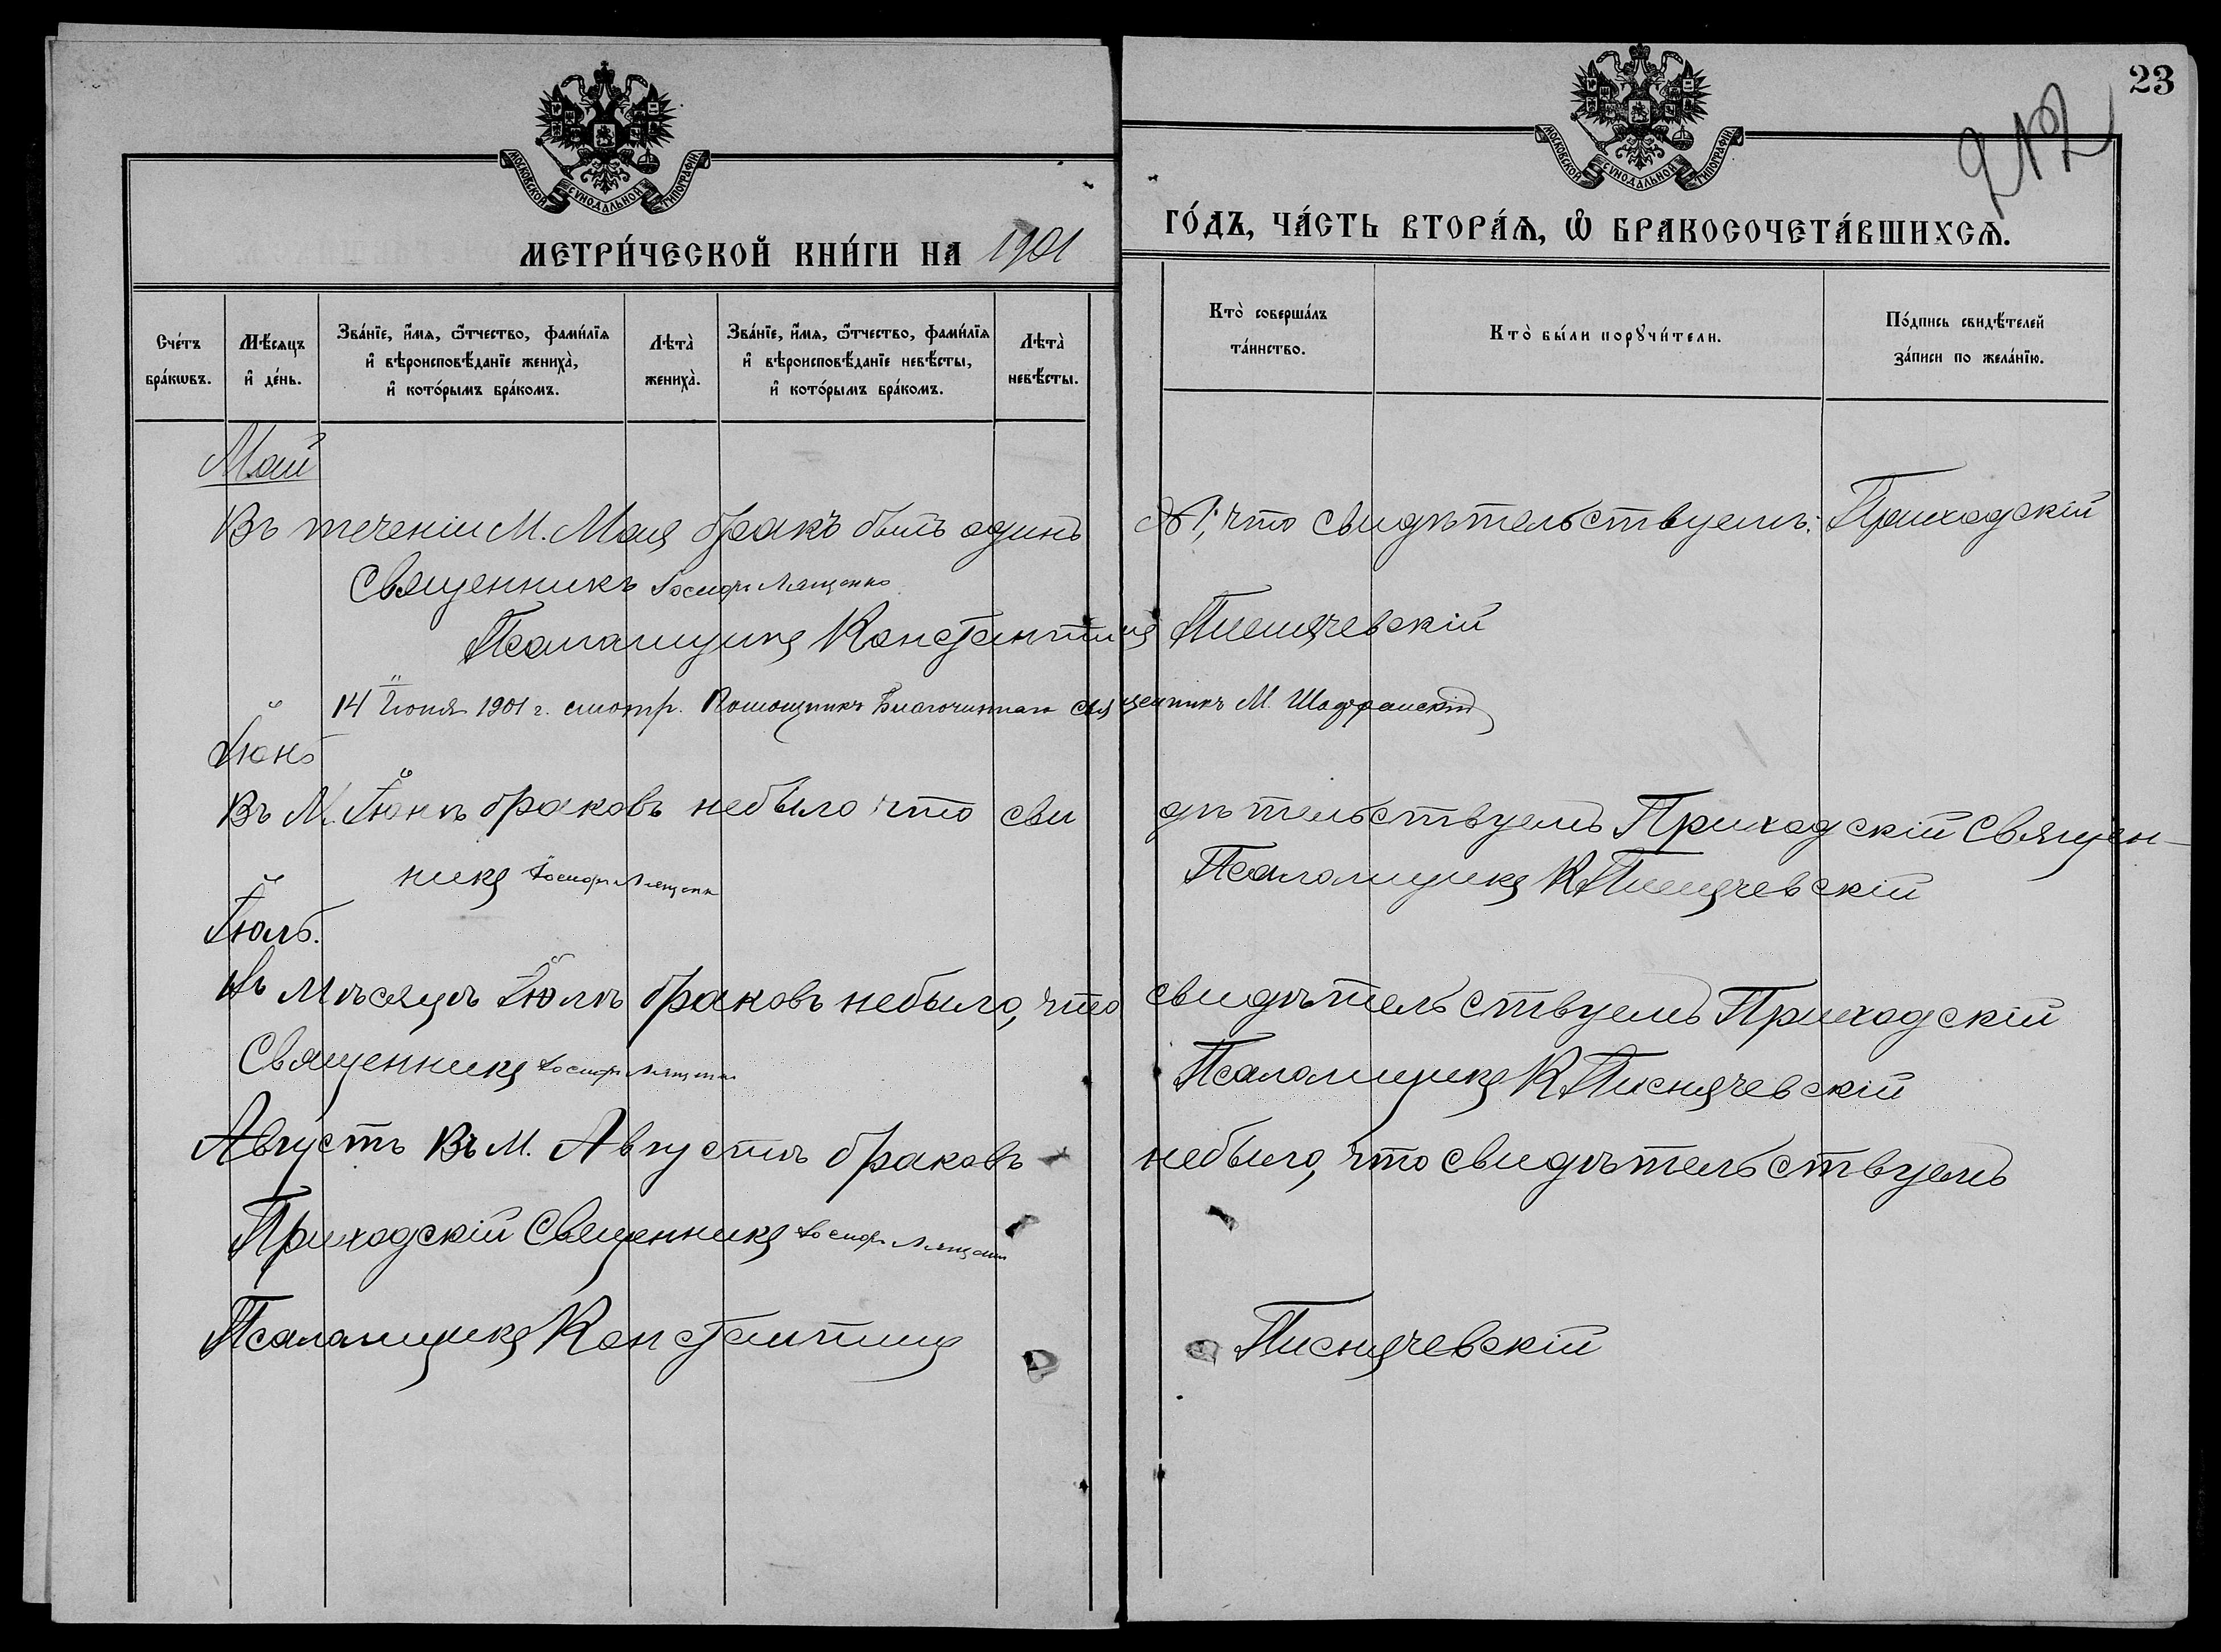 23
212
МОСКОВСКОЙ СѴНОДАЛЬНОЙ ТИПОГРАФІИ
МОСКОВСКОЙ СѴНОДАЛЬНОЙ ТИПОГРАФІИ
МЕТРИ́ЧЕСКОЙ КНИ́ГИ НА 1901 ГО́ДЪ, ЧА́СТЬ ВТОРА́Ѧ, Ѡ҆ БРАКОСОЧЕТА́ВШИХСѦ.
Сче́тъ бра́кѡвъ.
Мѣ́сяцъ и҆ де́нь.
Зва́нїе, и҆́мѧ, ѻ҆́тчество, фами́лїѧ и҆ вѣроисповѣ́данїе жениха̀, и҆ кото́рымъ бра́комъ.
Лѣта̀ жениха̀.
Зва́нїе, и҆́мѧ, ѻ҆́тчество, фами́лїѧ и҆ вѣроисповѣ́данїе невѣ́сты, и҆ кото́рымъ бра́комъ.
Лѣта̀ невѣ́сты.
Кто̀ соверша́лъ та́инство.
Кто̀ бы́ли порꙋчи́тели.
По́дпись свидѣ́телей за́писи по жела́нїю.
Май
Въ теченіи М. Мая бракъ былъ одинъ №1, что свидѣтельствуемъ: Приходскій
Священникъ Лященко
Псаломщикъ Константинъ Писнячевскій
14 Іюня 1901 г. смотр. Помощникъ Благочиннаго священникъ М.
Іюнь
Въ М. Іюнѣ браковъ небыло что свидѣтельствуемъ Приходскій Священ-
никъ Лященко Псаломщикъ К Писнячевскій
Іюль.
Въ мѣсяцѣ Іюлѣ браковъ небыло, что свидѣтельствуемъ Приходскій
Священникъ Лященко Псаломщикъ К Писнячевскій
Августъ Въ М. Августѣ браковъ небыло, что свидѣтельствуемъ
Приходскій Священникъ Лященко
Псаломщикъ Константинъ Писнячевскій